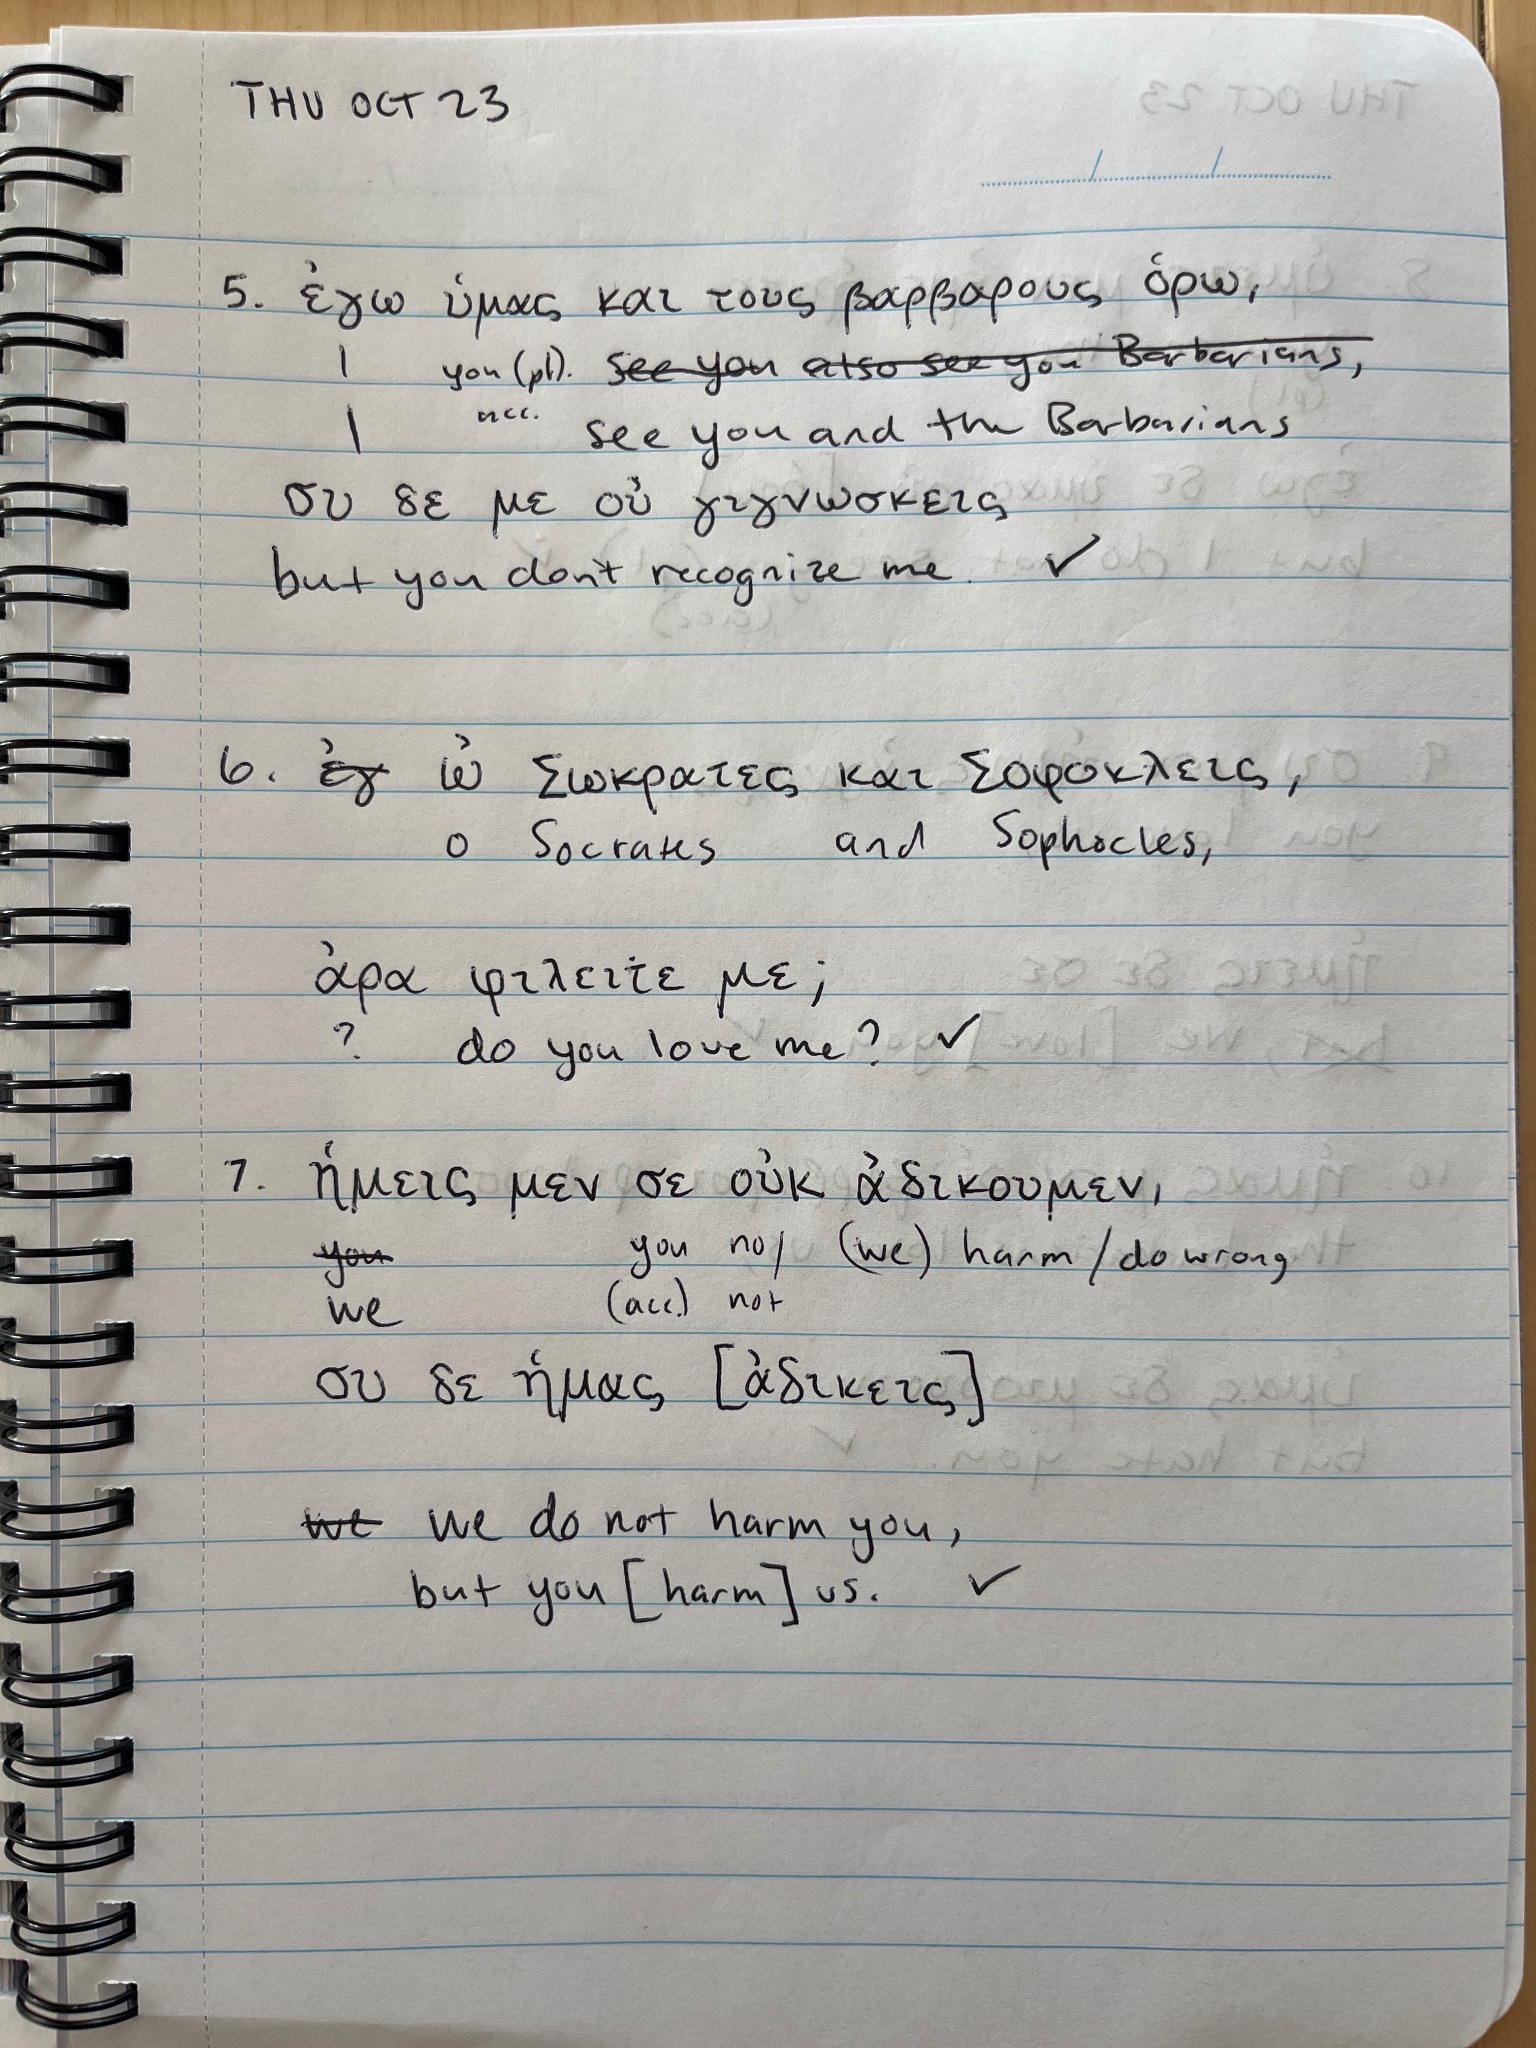 THU OCT 23
5. ἐγω ὑμας και τους βαρβαρους ὁρω,
I you (pl). ~~see you~~ ~~also see you Barbarians,~~
acc.
I see you and the Barbarians
συ δε με οὐ γιγνωσκεις
but you don't recognize me. ✓
6. ~~ἐγ~~ ὠ Σωκρατες και Σοφοκλεις,
o Socrates and Sophocles,
ἀρα φιλειτε με;
? do you love me? ✓
7. ἡμεις μεν σε οὐκ ἀδικουμεν,
~~you~~ you no/ (we) harm / do wrong
we (acc.) not
συ δε ἡμας [ἀδικεις]
~~we~~ we do not harm you,
but you [harm] us. ✓